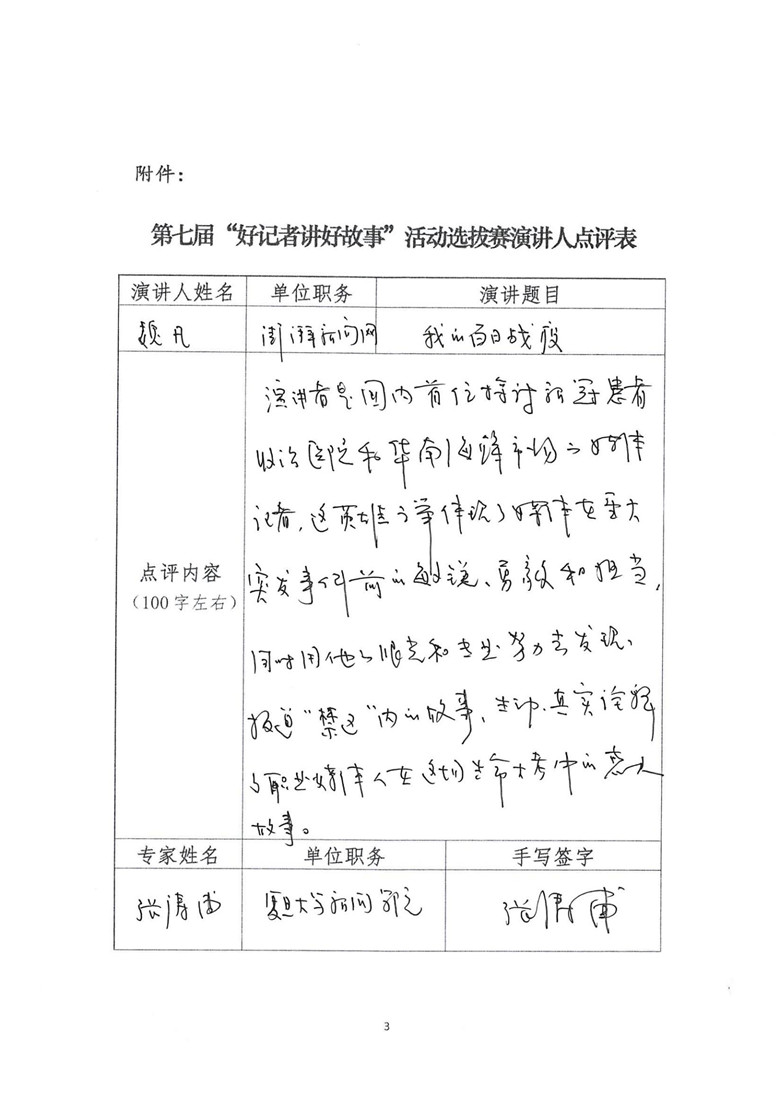 附件：
第七届“好记者讲好故事”活动选拔赛演讲人点评表
演讲人姓名 单位职务 演讲题目
魏凡 澎湃新闻网 我的百日战疫
演讲者是国内首位探讨新冠患者
收治医院和华南海鲜市场的媒体
记者，这项大胆之举体现了媒体在重大
突发事件前的敏锐、勇毅和担当，
点评内容
（100字左右）
同时用他的眼光和专业努力去发现、
报道“禁区”内的故事，生动、真实诠释
了职业媒体人在这场生命大考中的感人
故事。
专家姓名 单位职务 手写签字
张涛甫 复旦大学新闻学院 张涛甫
3